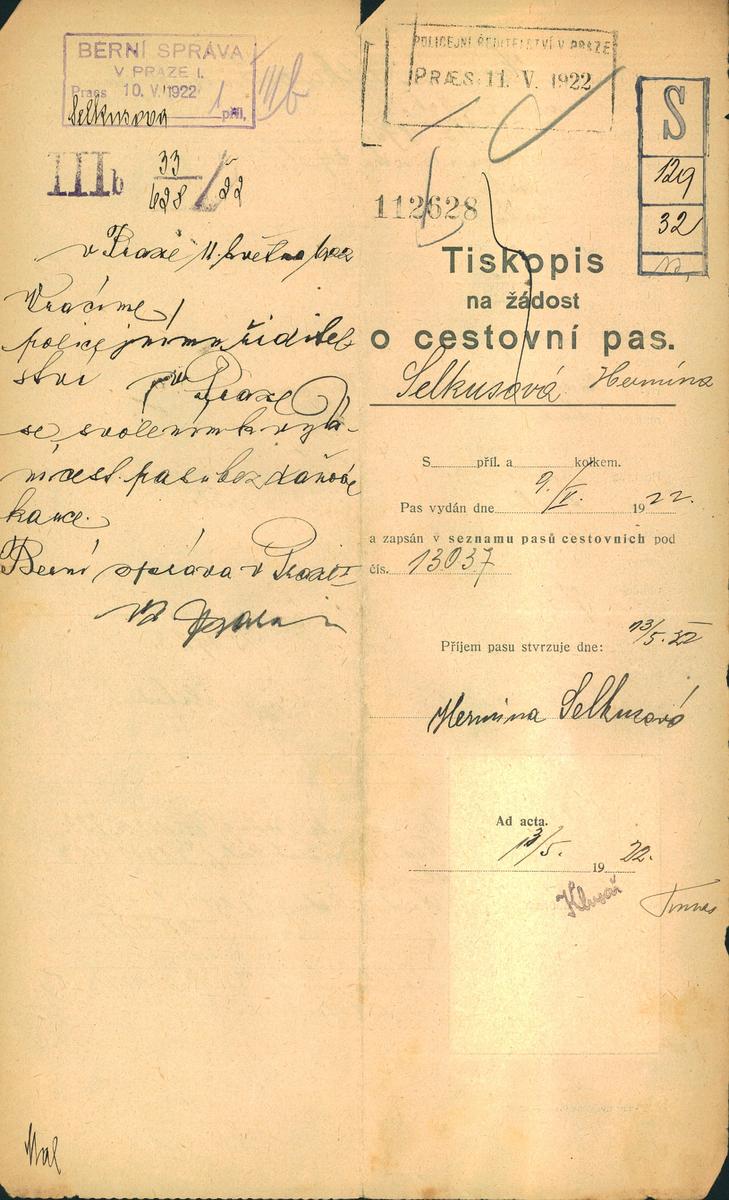 BERNÍ SPRÁVA
V PRAZE I.
Praes 10. V. 1922
1 příl.
Selkusova
IIIb
IIIb 33/628/22
v Praze 11. května 1922
Vracíme
policejnímu ředitel
ství v Praze
se svolením k vydá-
ní cest. pasu bez daňové
kauce.
Berní správa v Praze I
Mal
POLICEJNÍ ŘEDITELSTVÍ V PRAZE
PRAES: 11. V. 1922
S
129
32
112628
Tiskopis
na žádost
o cestovní pas.
Selkusová Hermína
S příl. a kolkem.
Pas vydán dne 9./V. 1922.
a zapsán v seznamu pasů cestovních pod
čís. 13037
Příjem pasu stvrzuje dne: 13/5. 22
Hermina Selkusová
Ad acta.
13/5. 1922.